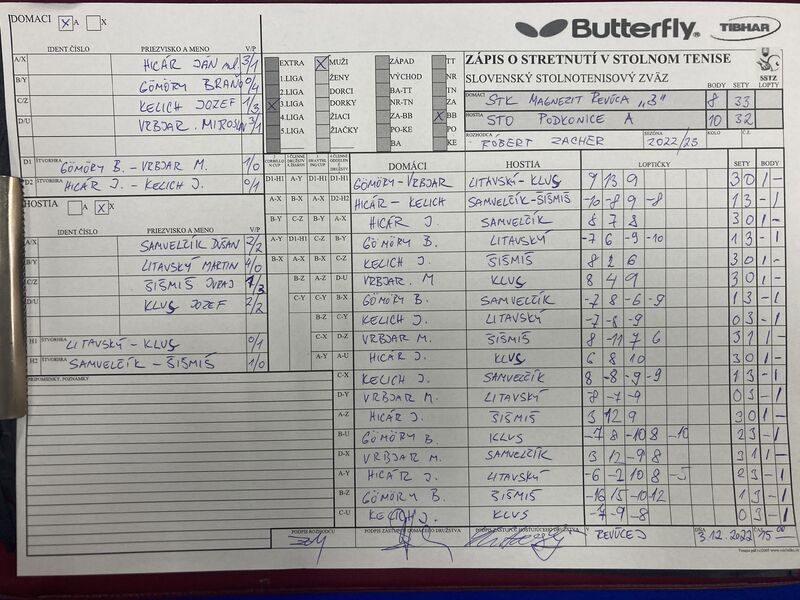 DOMÁCI X A X
Butterfly. TIBHAR
ZÁPIS O STRETNUTÍ V STOLNOM TENISE
SLOVENSKÝ STOLNOTENISOVÝ ZVÄZ
SSTZ
IDENT.ČÍSLO PRIEZVISKO A MENO V/P
A/X HICÁR JÁN ml 3/1
B/Y GÖMÖRY BRAŇO 0/4
C/Z KELICH JOZEF 1/3
D/U VRBJAR MIROSLAV 3/1
D1 ŠTVORHRA GÖMÖRY B. - VRBJAR M. 1/0
D2 ŠTVORHRA HICÁR J. - KELICH J. 0/1
EXTRA X MUŽI ZÁPAD TT
1.LIGA ŽENY VÝCHOD NR
2.LIGA DORCI BA-TT TN
X 3.LIGA DORKY NR-TN ZA
4.LIGA ŽIACI ZA-BB X BB
5.LIGA ŽIAČKY PO-KE PO
BA KE
BODY SETY LOPTY
DOMÁCI STK MAGNEZIT REVÚCA "B" 8 33
HOSTIA STO PODKONICE A 10 32
ROZHODCA RÓBERT ZACHER SEZÓNA 2022/23 KOLO Č.Z.
HOSTIA A X X
IDENT.ČÍSLO PRIEZVISKO A MENO V/P
A/X SAMUELČÍK DUŠAN 2/2
B/Y LITAVSKÝ MARTIN 4/0
C/Z ŠIŠMIŠ JURAJ 1/3
D/U KLUS JOZEF 2/2
H1 ŠTVORHRA LITAVSKÝ - KLUS 0/1
H2 ŠTVORHRA SAMUELČÍK - ŠIŠMIŠ 1/0
PRIPOMIENKY, POZNÁMKY
DOMÁCI HOSTIA LOPTIČKY SETY BODY
D1-H1 A-Y A-X D1-H1 GÖMÖRY - VRBJAR LITAVSKÝ - KLUS 9 13 9 3 0 1 -
A-X B-X B-Y D2-H2 HICÁR - KELICH SAMUELČÍK - ŠIŠMIŠ -10 -8 9 -8 1 3 - 1
B-Y C-Y C-Z A-X HICÁR J. SAMUELČÍK 8 7 8 3 0 1 -
A-Y D1-H1 C-Z B-Y GÖMÖRY B. LITAVSKÝ -7 6 -9 -10 1 3 - 1
B-X A-X A-Z C-Z KELICH J. ŠIŠMIŠ 8 2 6 3 0 1 -
B-Z A-Z D-U VRBJAR. M KLUS 8 4 9 3 0 1 -
C-Y C-Y B-X GÖMÖRY B. SAMUELČÍK -7 8 -6 -9 1 3 - 1
B-Z C-Y KELICH J. LITAVSKÝ -7 -8 -9 0 3 - 1
C-X D-Z VRBJAR M. ŠIŠMIŠ 8 -11 7 6 3 1 1 -
A-Y A-U HICÁR J. KLUS 6 8 10 3 0 1 -
C-X KELICH J. SAMUELČÍK 8 -8 -9 -9 1 3 - 1
D-Y VRBJAR M. LITAVSKÝ -8 -7 -9 0 3 - 1
A-Z HICÁR J. ŠIŠMIŠ 3 12 9 3 0 1 -
B-U GÖMÖRY B. KLUS -7 8 -10 8 -10 2 3 - 1
D-X VRBJAR M. SAMUELČÍK 3 12 -9 8 3 1 1 -
A-Y HICÁR J. LITAVSKÝ -6 -2 10 8 -5 2 3 - 1
B-Z GÖMÖRY B. ŠIŠMIŠ -16 15 -10 -12 1 3 - 1
C-U KELICH J. KLUS -7 -9 -8 0 3 - 1
PODPIS ROZHODCU PODPIS ZÁSTUPCU DOMÁCEHO DRUŽSTVA PODPIS ZÁSTUPCU HOSŤUJÚCEHO DRUŽSTVA V REVÚCEJ DŇA 3.12.2022 ČAS 15 00